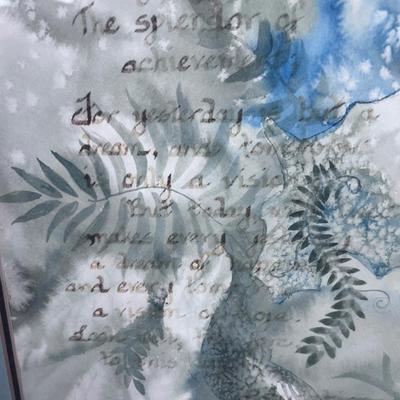 The splendor of
achievement;
For yesterday is but a
dream, and tomorrow
is only a vision
But today, well
makes every yesterday
a dream of
and every tom
a vision of hope.
Look
to